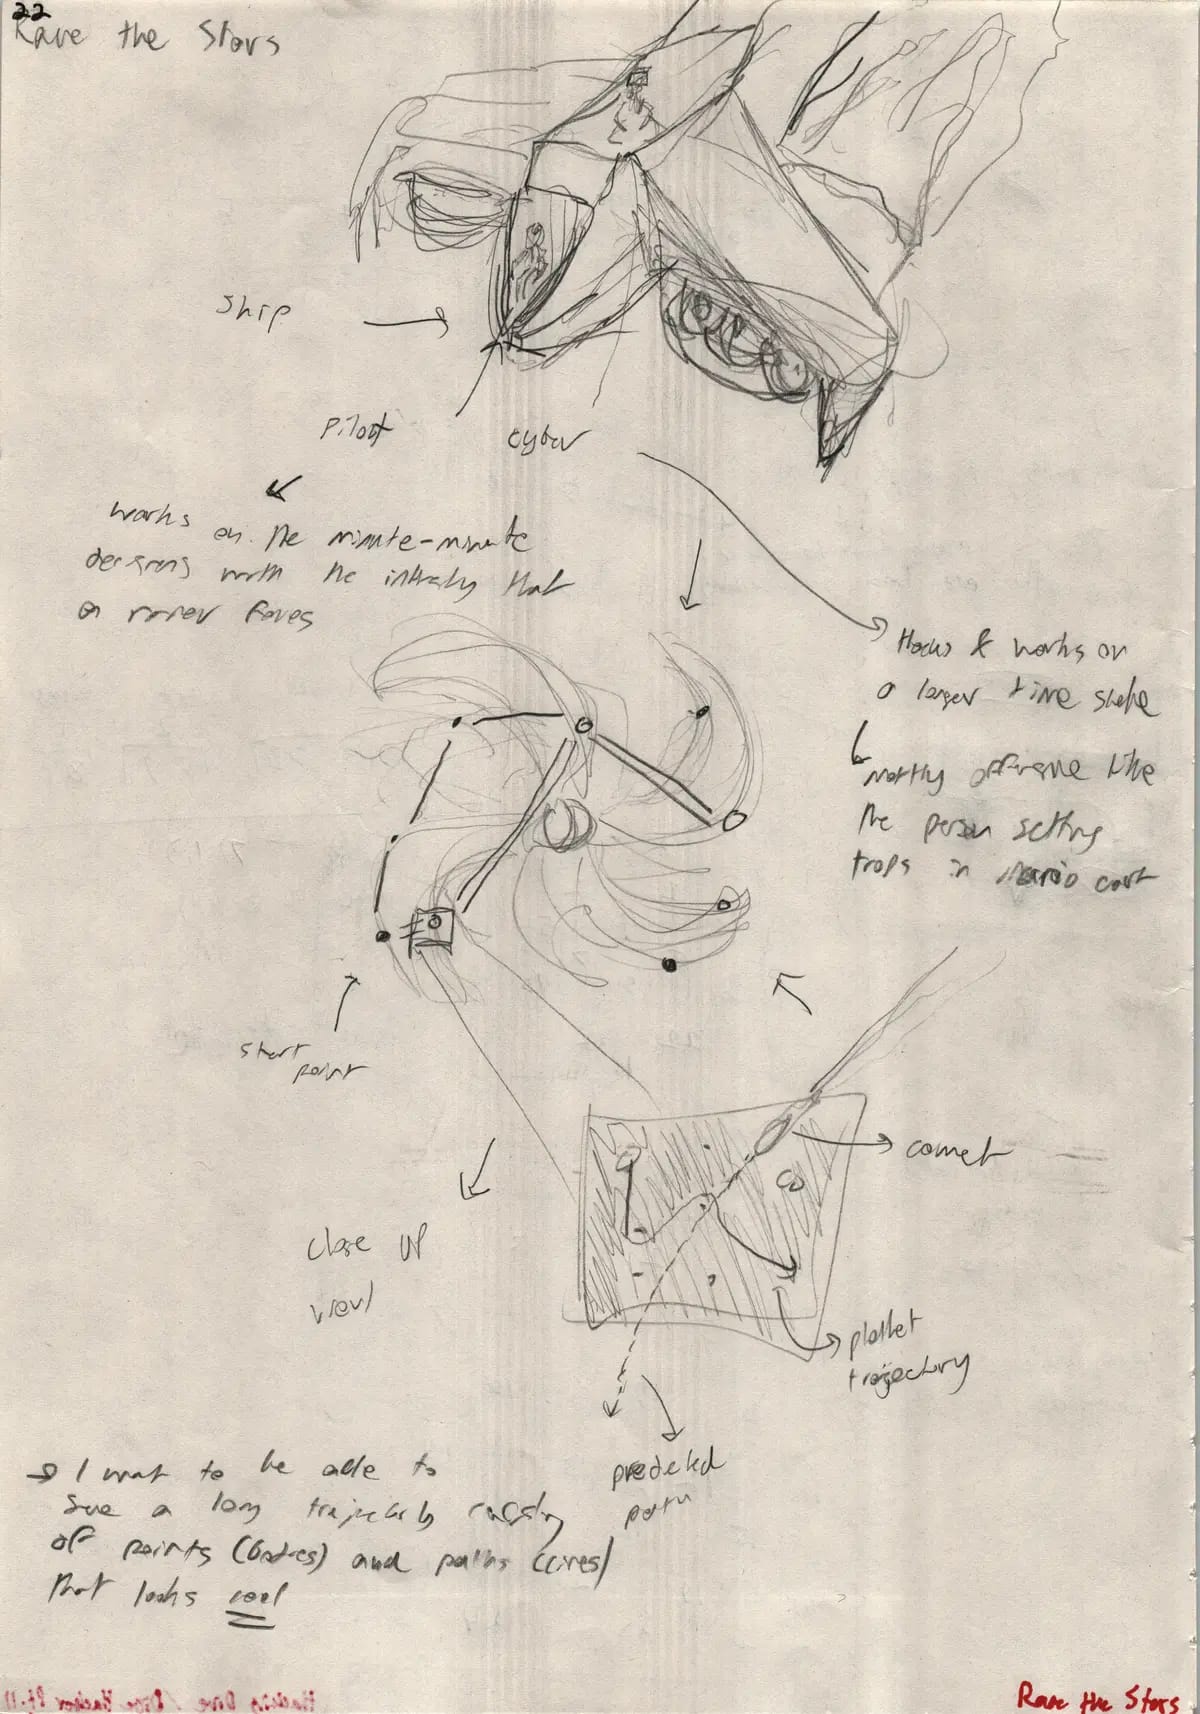 22
Rave the Stars
Ship
Pilot
cyber
works on the minute-minute
decisions with the intensity that
a raver faves
Hacks & works on
a larger time
mostly offensive like
the person setting
traps in Mario cart
start
point
comet
close up
view
planet
trajectory
predicted
path
→ I want to be able to
a long trajectory
of points (bodies) and paths (lines)
that looks cool
Rave the Stars